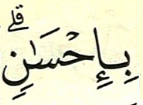 بِإِحۡسَٰنٖۗ